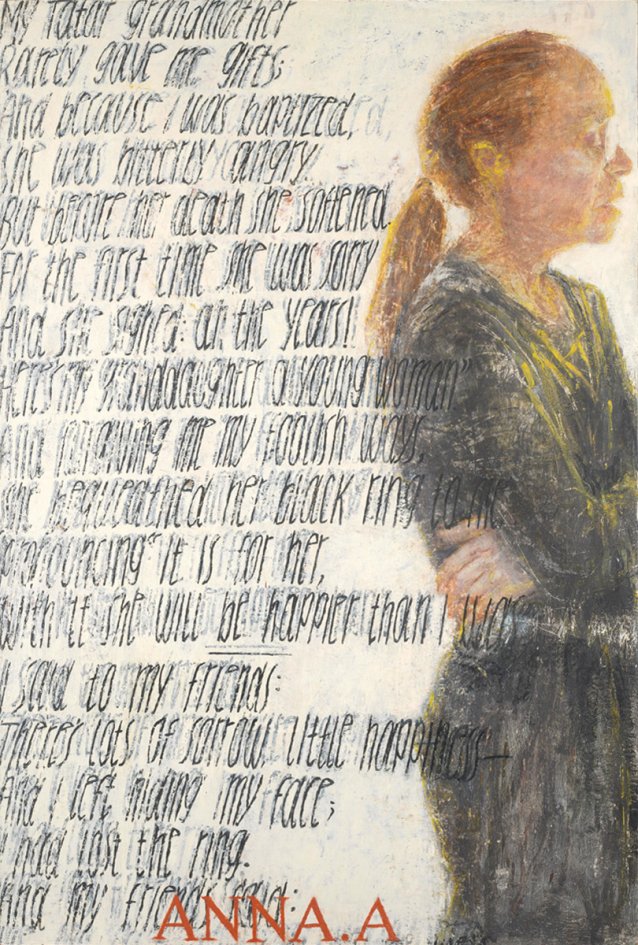 My Tatar grandmother
Rarely gave me gifts;
And because I was baptized,
she was bitterly angry.
But before her death she softened
For the first time she was sorry
And she sighed: ah, the years!
Here's my granddaughter a young woman"
And forgiving me my foolish ways,
she bequeathed her black ring to me
pronouncing "it is for her,
with it she will be happier than I was
I said to my friends:
There's lots of sorrow, little happiness—
And I left hiding my face;
I had lost the ring.
And my friends said:
ANNA.A